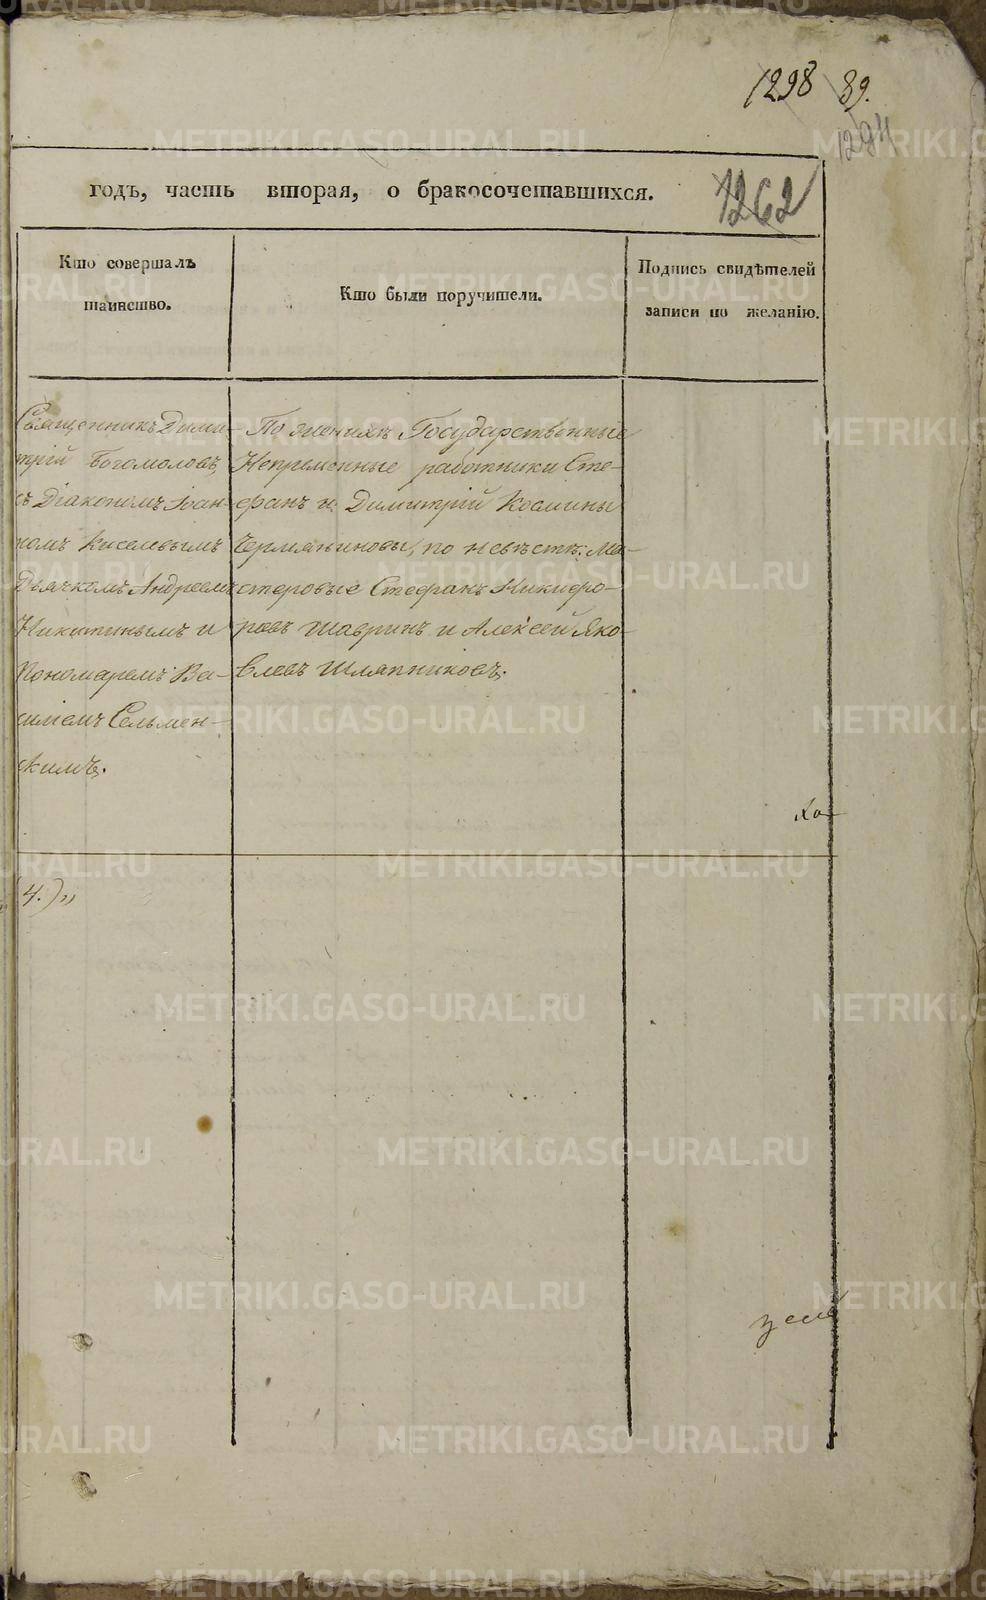 1298 89.
1294
годъ, часть вторая, о бракосочетавшихся.
1262
Кто совершалъ
таинство.
Кто были поручители.
Подпись свидѣтелей
записи по желанію.
Священникъ Дими-
трій Богомоловъ,
съ Діакономъ Іоан-
номъ Киселевымъ
Дьячкомъ Андреемъ
Никитинымъ и
Пономаремъ Ва-
силіемъ Сельмен-
скимъ.
По женихѣ Государственные
Непременные работники Сте-
фанъ и Димитрій Космины
Чермяниновы, по невѣстѣ: Ма-
стеровые Стефанъ Никифо-
ровъ Шавринъ и Алексей Яко-
влевъ Шляпниковъ.
Ко
4.)"
земе
METRIKI.GASO-URAL.RU